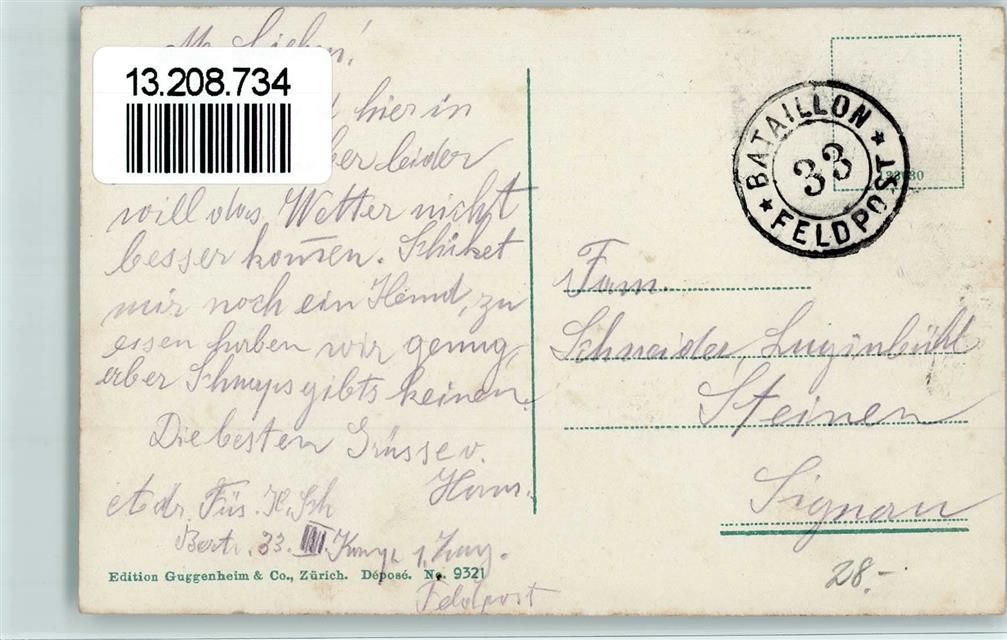 13.208.734
M. Lieben!
hier in
aber leider
will das Wetter nicht
besser kom̅en. Schiket
mir noch ein Hemd, zu
essen haben wir genug,
aber Schnaps gibts keinen.
Die besten Grüsse v.
Hans.
Füs. H. Sch
Bat. 33. III. Komp. 1. Zug.
Feldpost
Edition Guggenheim & Co., Zürich. Déposé. No. 9321
BATAILLON
33
FELDPOST
Fam.
Schneider, Luginbühl
Steinen
Signau
28.-